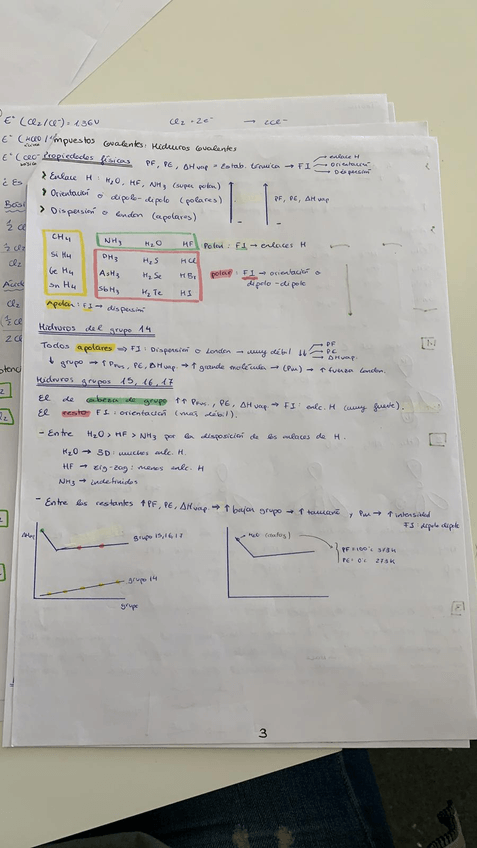 E° (Cl₂/Cl⁻) = 1'36V
Cl₂ + 2e⁻ → 2Cl⁻
mpuestos covalentes: Hidruros covalentes
Propiedades físicas PF, PE, ΔHvap = Estab. térmica → FI
enlace H
Orientación
Dispersión
> Enlace H: H₂O, HF, NH₃ (super polar)
> Orientación o dipolo-dipolo (polares)
PF, PE, ΔHvap
> Dispersión o London (apolares)
CH₄ NH₃ H₂O HF Polar: FI → enlaces H
SiH₄ PH₃ H₂S HCl
GeH₄ AsH₃ H₂Se HBr polar: FI → orientación o
dipolo-dipolo
SnH₄ SbH₃ H₂Te HI
Apolar: FI → dispersión
Hidruros del grupo 14
Todos apolares => FI: Dispersión o London → muy débil ↓↓
PF
PE
ΔHvap.
↓ grupo → ↑ PFus, PE, ΔHvap. → ↑ grande molécula → (Pm) → ↑ fuerza London.
Hidruros grupos 15, 16, 17
El de cabeza de grupo ↑↑ PFus, PE, ΔHvap → FI: enlc. H (muy fuerte).
El resto FI: orientación (más débil).
- Entre H₂O > HF > NH₃ por la disposición de los enlaces de H.
H₂O → 3D: muchos enlc. H
HF → zig-zag: menos enlc. H
NH₃ → indefinidos
- Entre los restantes ↑ PF, PE, ΔHvap. → ↑ bajar grupo → ↑ tamaño y Pm → ↑ intensidad
FI: dipolo dipolo
ΔHvap
grupo 15, 16, 17
grupo 14
grupo
PF = 100°: 373K
PE: 0°: 273K
3